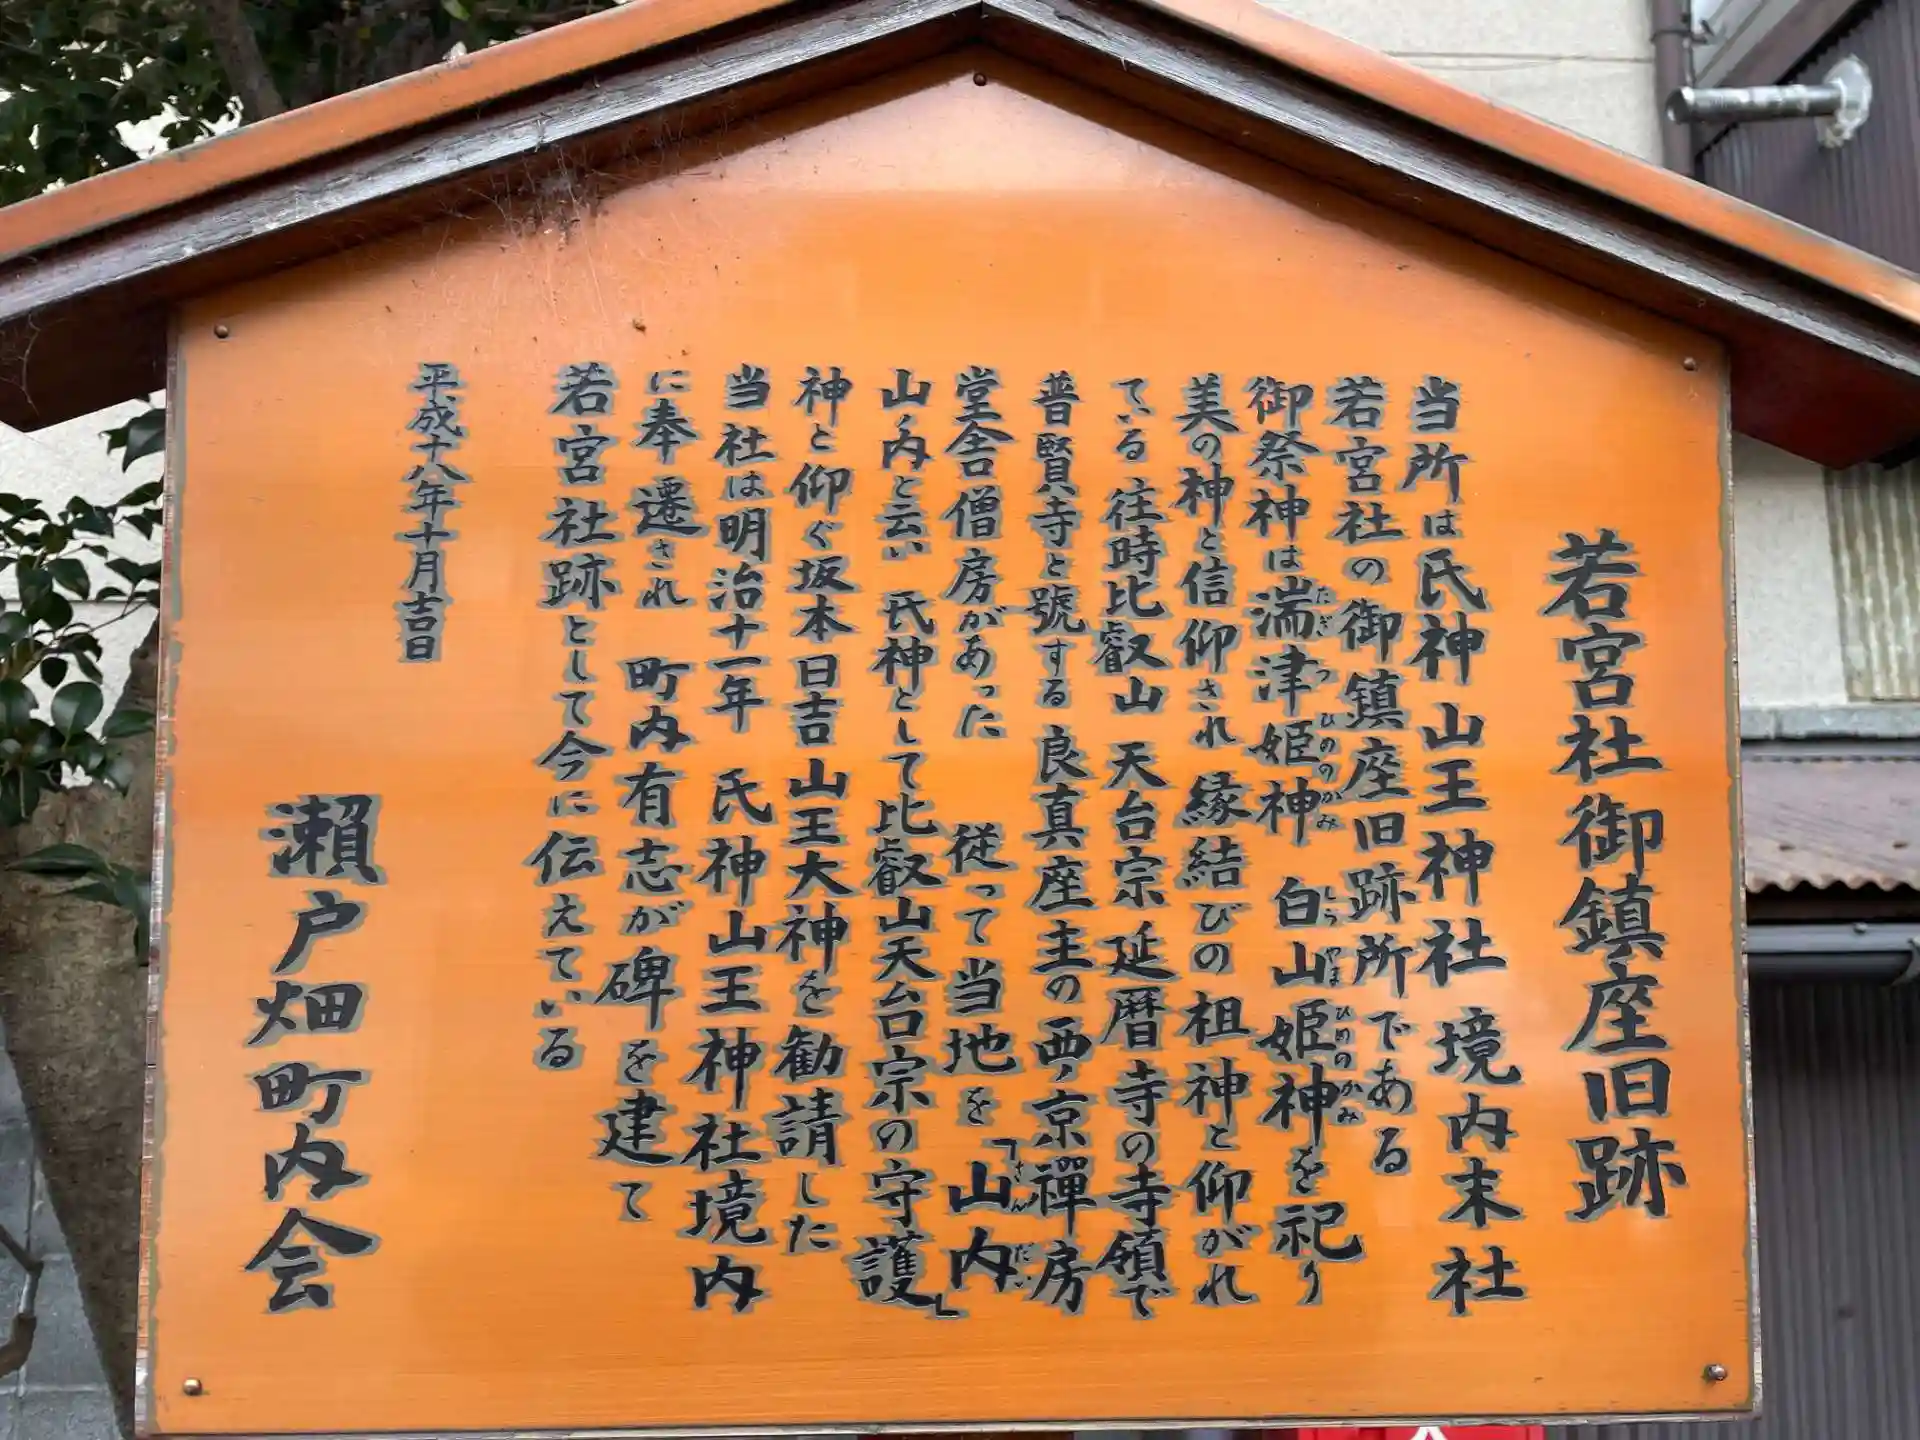 若宮社御鎮座旧跡
当所は氏神山王神社 境内末社
若宮社の御鎮座旧跡所である
御祭神は湍津姫神 白山姫神を祀り
たぎ つ ひめのかみ しら やま ひめのかみ
美の神と信仰され 縁結びの祖神と仰がれ
ている 往時比叡山 天台宗 延暦寺の寺領で
普賢寺と號する 良真座主の西ノ京禪房
堂舎僧房があった 従って当地を「山内
さん だい
山ノ内と云い 氏神として比叡山天台宗の守護」
神と仰ぐ坂本日吉山王大神を勧請した
当社は明治十一年 氏神山王神社境内
に奉遷され 町内有志が碑を建て
若宮社跡として今に伝えている
平成十八年十月吉日
瀬戸畑町内会